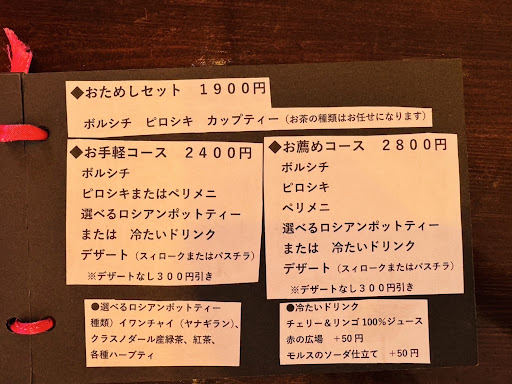 ◆おためしセット　１９００円
ボルシチ　ピロシキ　カップティー（お茶の種類はお任せになります）
◆お手軽コース　２４００円
ボルシチ
ピロシキまたはペリメニ
選べるロシアンポットティー
または　冷たいドリンク
デザート（スィロークまたはパスチラ）
※デザートなし３００円引き
◆お薦めコース　２８００円
ボルシチ
ピロシキ
ペリメニ
選べるロシアンポットティー
または　冷たいドリンク
デザート（スィロークまたはパスチラ）
※デザートなし３００円引き
●選べるロシアンポットティー
種類）イワンチャイ（ヤナギラン）、
クラスノダール産緑茶、紅茶、
各種ハーブティ
●冷たいドリンク
チェリー＆リンゴ100％ジュース
赤の広場　+50円
モルスのソーダ仕立て　+50円